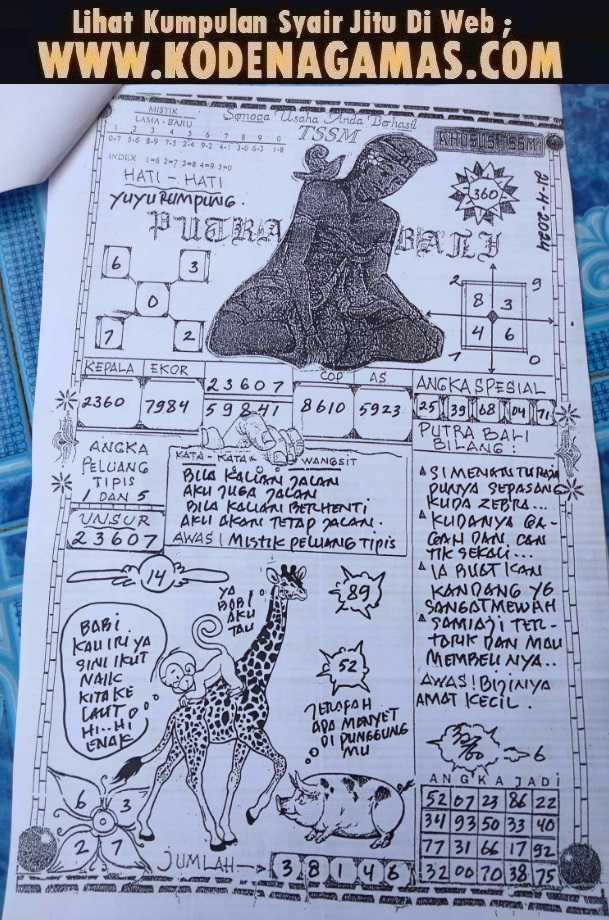 Lihat Kumpulan Syair Jitu Di Web ;
WWW.KODENAGAMAS.COM
MISTIK
LAMA - BARU
Semoga Usaha Anda Berhasil
TSSM
KHUSUS TSSM
1 2 3 4 5 6 7 8 9 0
0-7 5-6 8-9 7-5 2-4 9-2 4-1 3-0 6-3 1-8
INDEX 1=6 2=7 3=8 4=9 5=0
HATI - HATI
YUYU RUMPUNG.
360
21-4-2024
PUTRA BALI
6 3
0
7 2
2 9
8 3
4 6
1 0
KEPALA EKOR
2360 7984
23607
59841
COP AS
8610 5923
ANGKA SPESIAL
25 39 68 04 71
ANGKA
PELUANG
TIPIS
1 DAN 5
UNSUR
23607
KATA - KATA WANGSIT
BILA KALIAN JALAN
AKU JUGA JALAN
BILA KALIAN BERHENTI
AKU AKAN TETAP JALAN.
AWAS! MISTIK PELUANG TIPIS
PUTRA BALI
BILANG :
SI MENANTU RAJA
PUNYA SEPASANG
KUDA ZEBRA...
KUDANYA GA-
GAH DAN CAN
TIK SEKALI...
IA BUAT KAN
KANDANG YG
SANGAT MEWAH
SAMIAJI TER-
TARIK DAN MAU
MEMBELI NYA...
AWAS! BIJINYA
AMAT KECIL.
14
YA
BOBI
AKU
TAU
89
52
BABI
KAU IRI YA
SINI IKUT
NAIK
KITA KE
LAUT
HI..HI
ENAK
JERAPAH
ADA MONYET
DI PUNGGUNG
MU
6 3
0
2 7
JUMLAH
3 8 1 4 6
6
ANGKA JADI
52 07 23 86 22
34 93 50 33 40
77 31 66 17 92
32 00 70 38 75